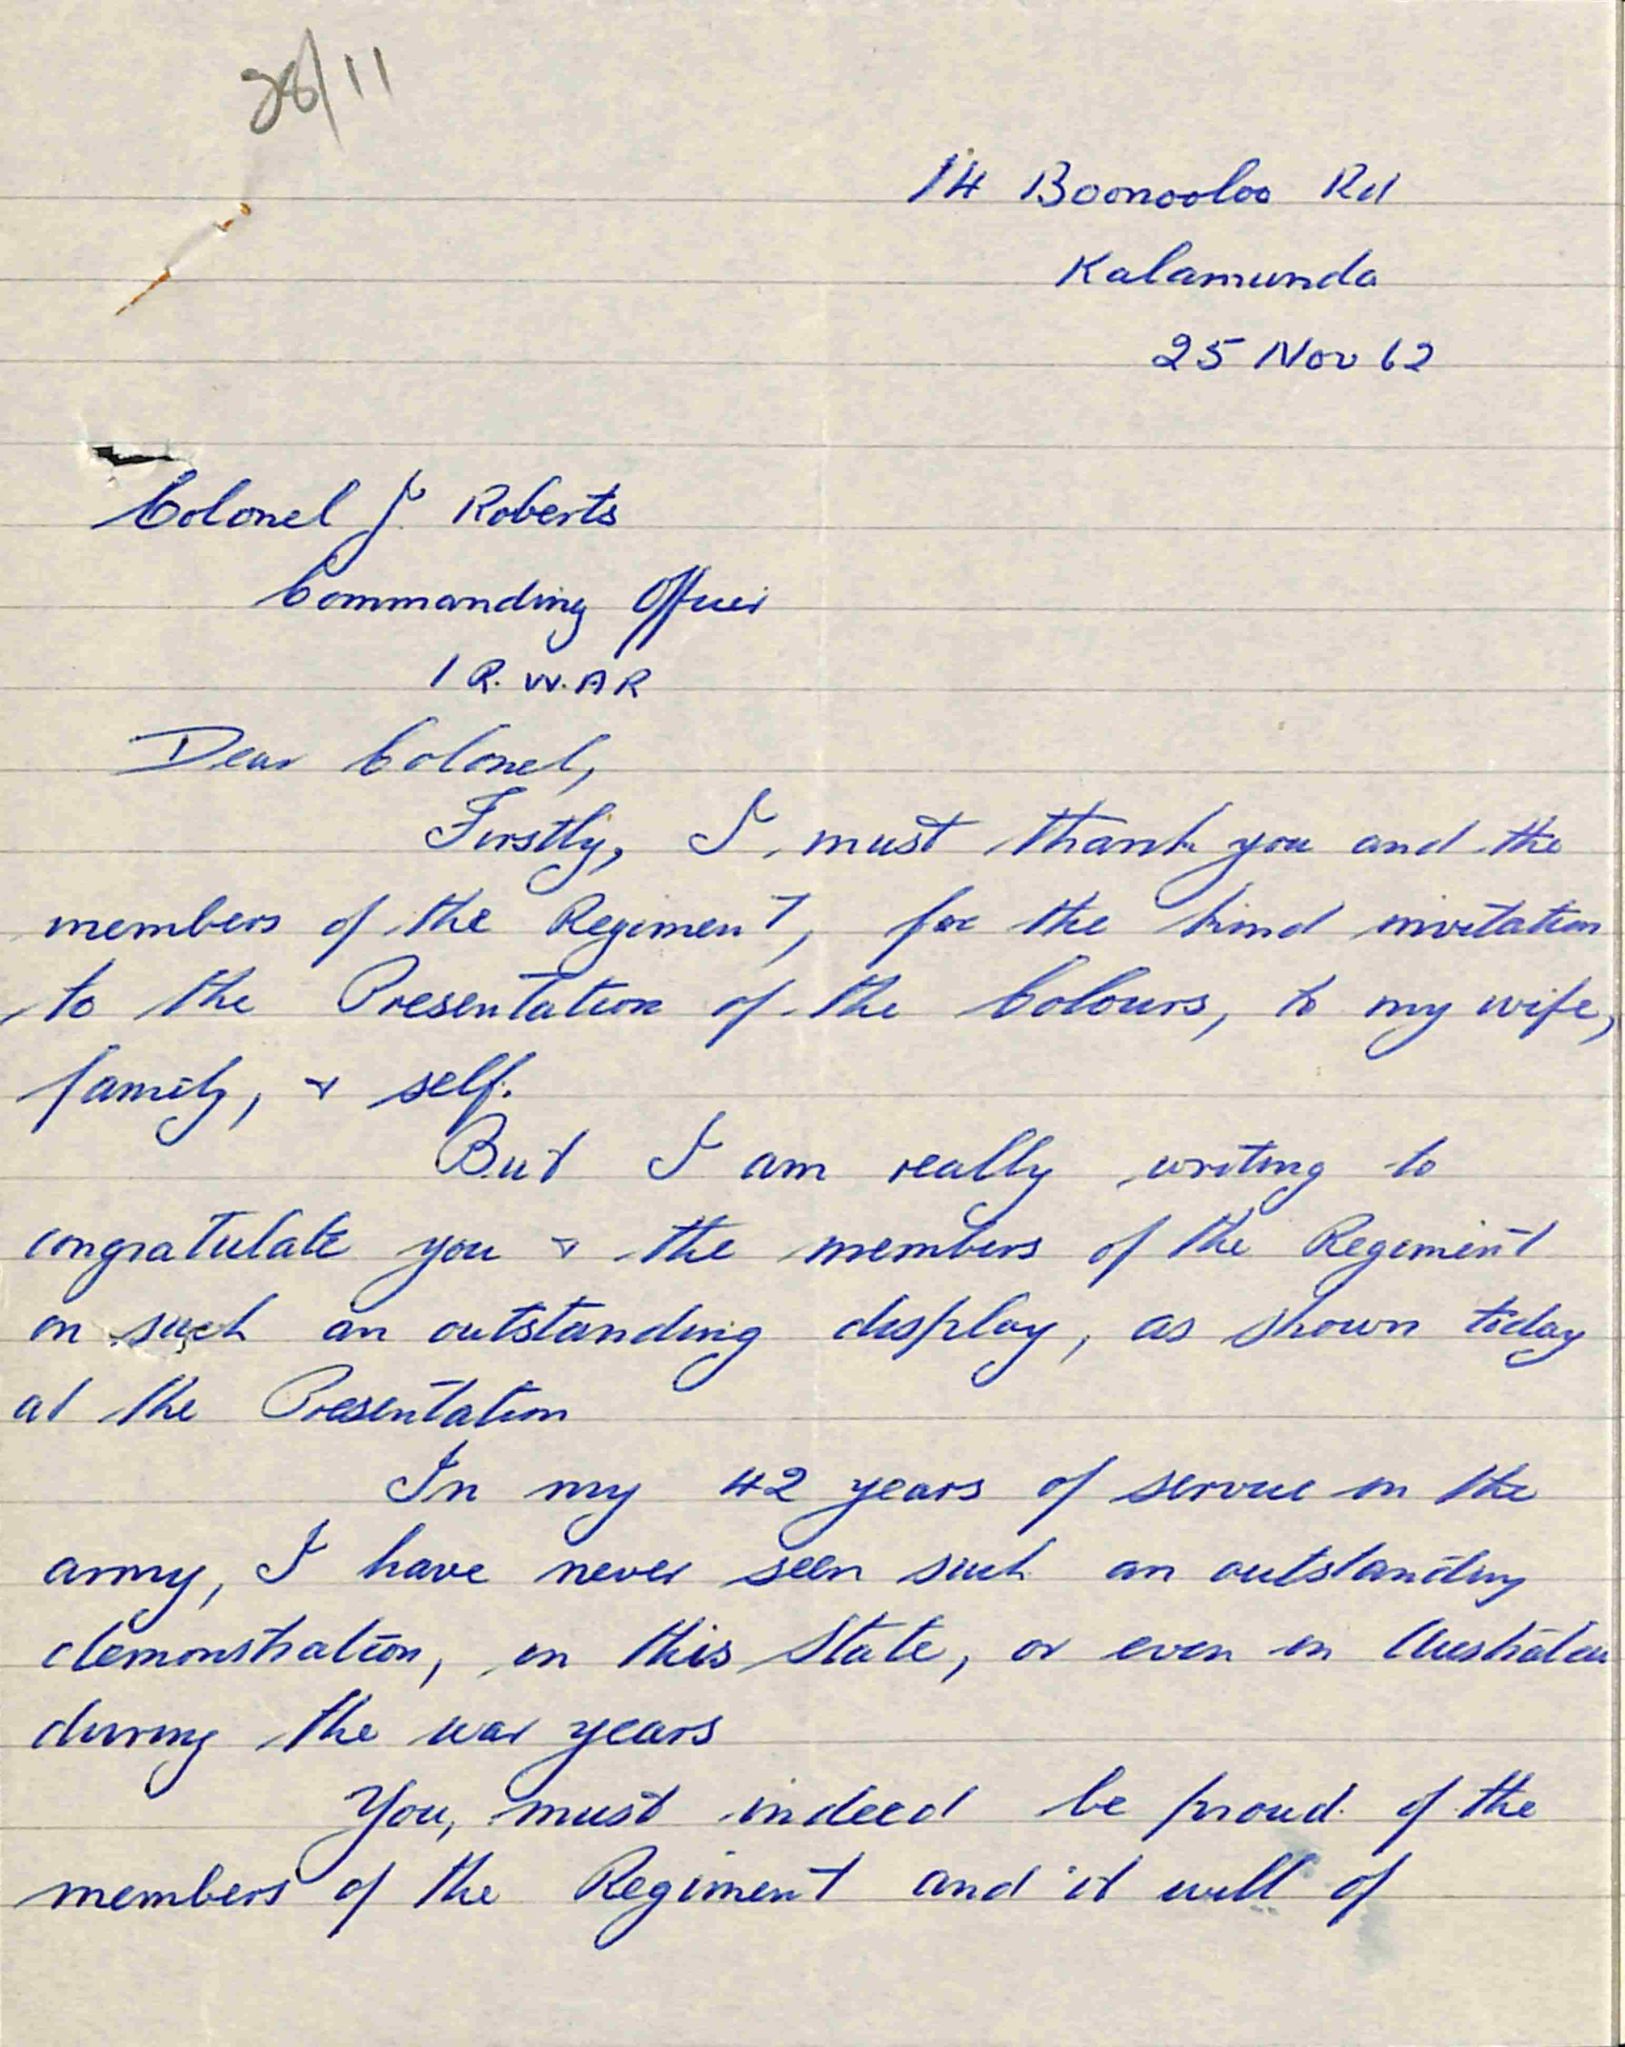 28/11
14 Boonooloo Rd
Kalamunda
25 Nov 62
Colonel J. Roberts
Commanding Officer
1 R.W.A R
Dear Colonel,
Firstly, I must thank you and the
members of the Regiment, for the kind invitation
to the Presentation of the Colours, to my wife,
family, & self.
But I am really writing to
congratulate you & the members of the Regiment
on such an outstanding display, as shown today
at the Presentation
In my 42 years of service in the
army, I have never seen such an outstanding
demonstration, in this State, or even in Australia
during the war years
You, must indeed be proud of the
members of the Regiment and it will of